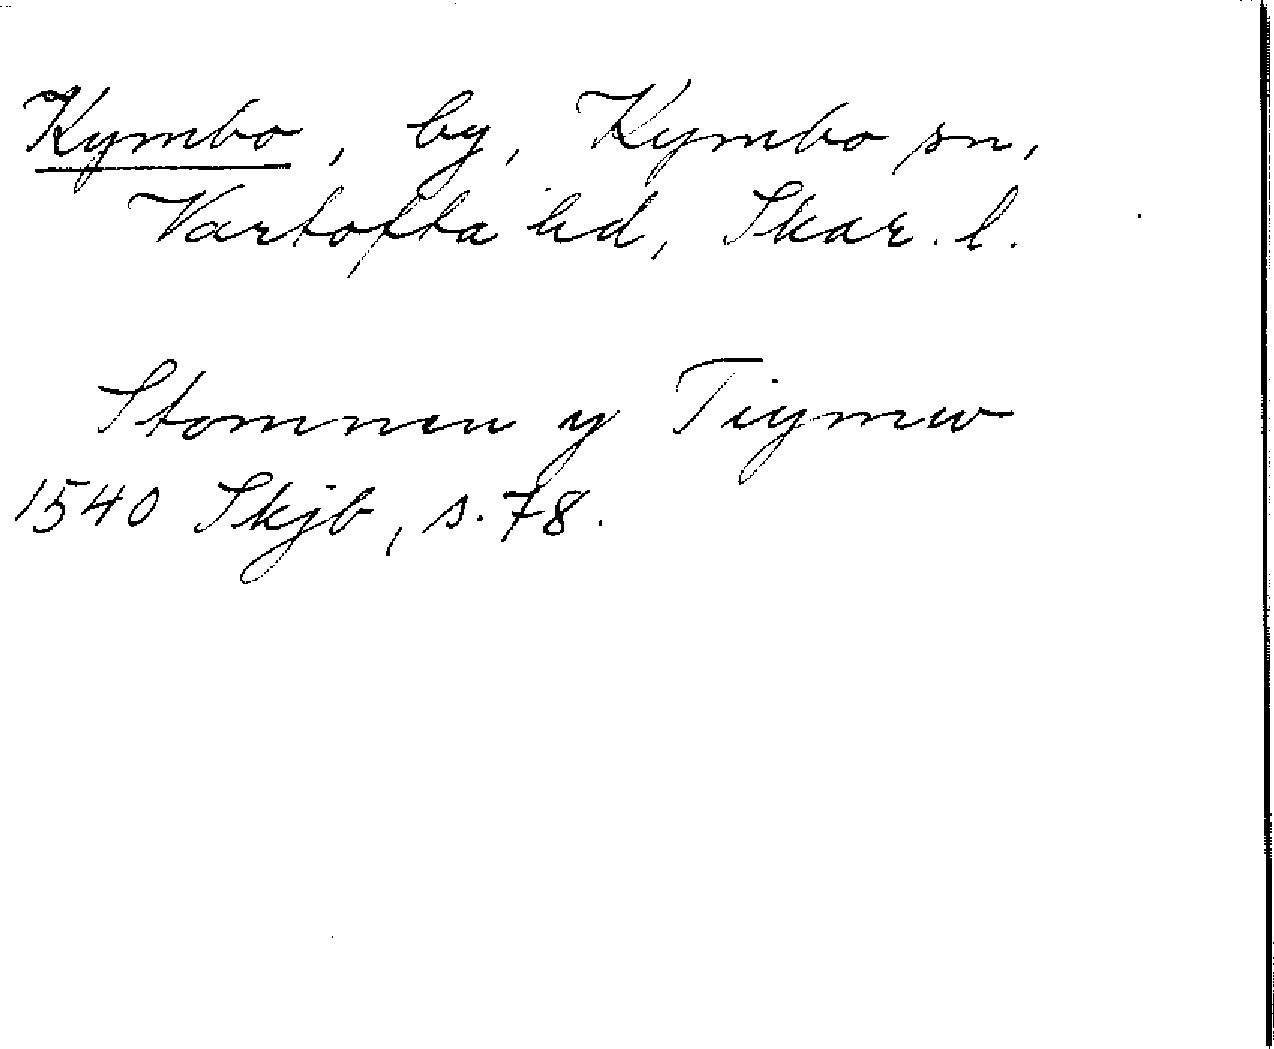 Kymbo, by, Kymbo sn,
Vartofta hd, Skar. l.
Stommen y Tiymw
1540 Skjb, s. 78.